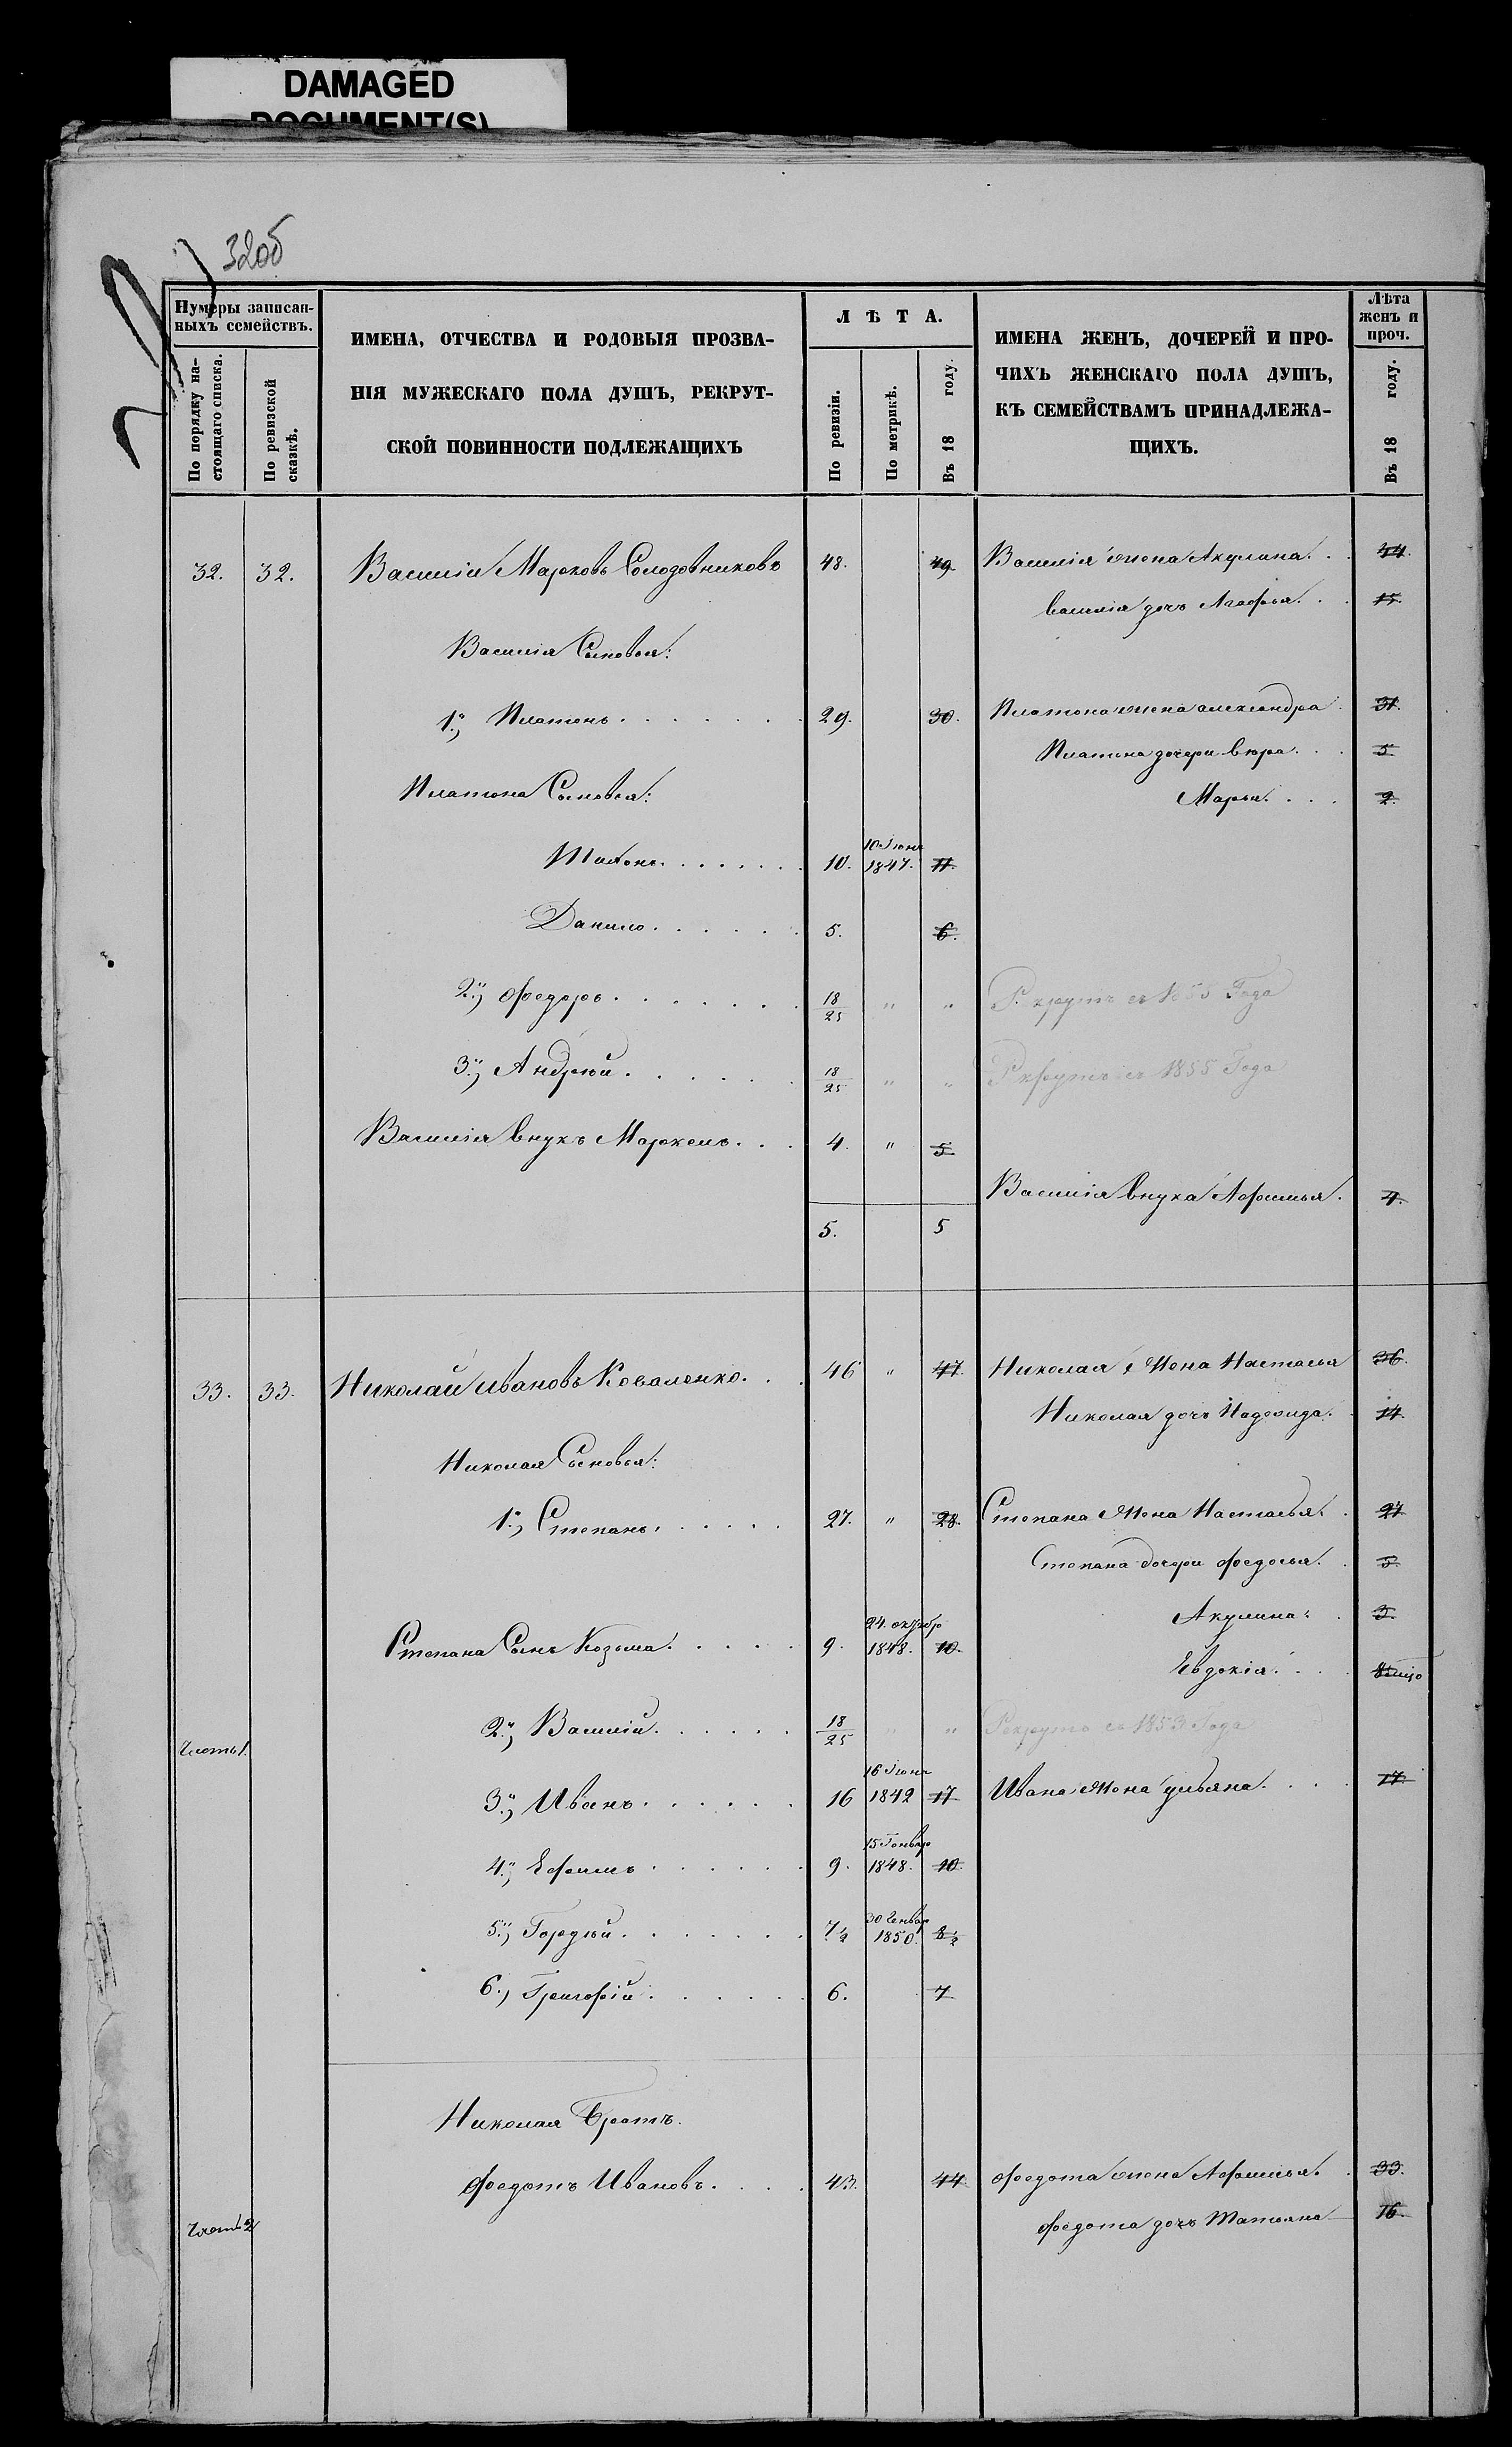 DAMAGED
DOCUMENT(S)
32об
Нумеры записан-
ныхъ семействъ.
По порядку на-
стоящаго списка.
По ревизской
сказкѣ.
ИМЕНА, ОТЧЕСТВА И РОДОВЫЯ ПРОЗВА-
НІЯ МУЖЕСКАГО ПОЛА ДУШЪ, РЕКРУТ-
СКОЙ ПОВИННОСТИ ПОДЛЕЖАЩИХЪ
ЛѢТА.
По ревизіи.
По метрикѣ.
Въ 18 году.
ИМЕНА ЖЕНЪ, ДОЧЕРЕЙ И ПРО-
ЧИХЪ ЖЕНСКАГО ПОЛА ДУШЪ,
КЪ СЕМЕЙСТВАМЪ ПРИНАДЛЕЖА-
ЩИХЪ.
Лѣта
женъ и
проч.
Въ 18 году.
32. 32. Василій Марковъ Солодовниковъ 48. 49 Василія жена Акулина. 44.
Василія дочь Агафья. 15.
Василія Сыновья:
1., Платонъ 29. 30. Платона жена александра 31.
Платона дочери вѣра. 5.
Платона Сыновья: Марья. 2.
10 Іюня
10. 1847. 11.
Данило 5. 6.
2., Федоръ 18/25 " " Рекрутъ съ 1855 Года
3., Андрѣй 18/25 " " Рекрутъ съ 1855 Года
Василія внукъ Маркелъ 4. " 5
Василія внука Афимья. 4.
5. 5
33. 33. Николай Ивановъ Коваленко. 46 " 47. Николая Жена Настасья 36.
Николая дочь 14.
Николая Сыновья:
1., Степанъ 27. " 28. Степана Жена Настасья. 27
Степана дочери Федосья. 5.
Акулина. 3.
24. октябр
Степана Сынъ Козьма. 9. 1848. 10.
Евдокія.
2., Василій 18/25 " " Рекрутъ съ 1853 Года
Часть 1.
16 Іюня
3., Иванъ 16 1842 17 Ивана Жена ульяна. 17
4., Ефимъ 9. 1848. 10
30 Генвар
5., Гордѣй 7½ 1850. 8½
6., Григорій 6. 7
Николая Братъ.
Федотъ Ивановъ. 43. 44 Федота жена Афимья. 33.
Часть 2 Федота дочь Татьяна 16.